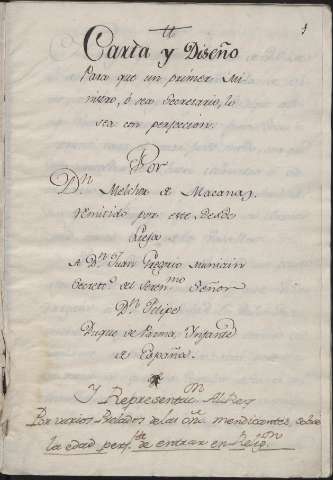 1
tt
Carta y Diseño
Para que un primer Mi
nistro, ó sea Secretario, lo
sea con perfeccion.
Por
Dn Melchor de Macanaz.
remitido por este desde
Lieja
A Dn Juan Gregorio Muniain
Secreto. del Serenmo Señor
Dn Felipe
Duque de Parma Infante
de España.
Y Representn. Al Rey
Por varios Prelados de las mendicantes, sobre
la edad de entrar en Relign